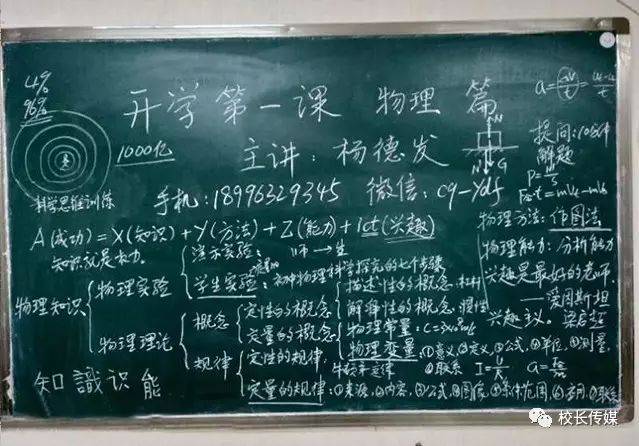 4%
96%
开学第一课 物理 篇
1000亿
主讲：杨德发
科学思维训练
手机：18996329345 微信：cq-ydf
N
G
提问：
解题
A(成功)＝X(知识)＋Y(方法)＋Z(能力)＋1ct(兴趣)
知识就是权力。
物理方法：作图法
物理能力：分析能力
兴趣是最好的老师。
——爱因斯坦
兴趣主义。梁启超
物理知识
物理实验
演示实验：师→生
学生实验：初中物理科学探究的七个步骤
物理理论
概念
定性的概念
描述性的概念：杠杆
解释性的概念：惯性
定量的概念
物理常量：C=3×10⁸m/s
物理变量：①意义，②定义，③公式，④单位，⑤测量，
⑥联系 I=U/R a=F合/m
规律
定性的规律：牛顿第一定律
定量的规律：①来源，②内容，③公式，④图像，⑤条件范围，⑥应用，⑦联系
知識识能
校长传媒